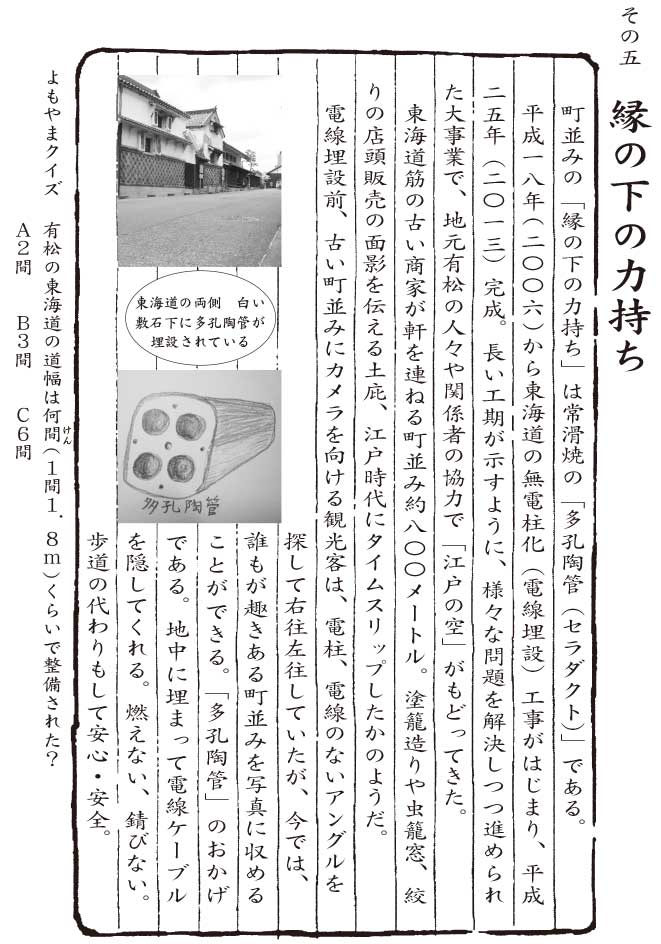 その五
縁の下の力持ち
町並みの「縁の下の力持ち」は常滑焼の「多孔陶管（セラダクト）」である。
平成一八年（二〇〇六）から東海道の無電柱化（電線埋設）工事がはじまり、平成
二五年（二〇一三）完成。長い工期が示すように、様々な問題を解決しつつ進められ
た大事業で、地元有松の人々や関係者の協力で「江戸の空」がもどってきた。
東海道筋の古い商家が軒を連ねる町並み約八〇〇メートル。塗籠造りや虫籠窓、絞
りの店頭販売の面影を伝える土庇、江戸時代にタイムスリップしたかのようだ。
電線埋設前、古い町並みにカメラを向ける観光客は、電柱、電線のないアングルを
探して右往左往していたが、今では、
誰もが趣きある町並みを写真に収める
ことができる。「多孔陶管」のおかげ
である。地中に埋まって電線ケーブル
を隠してくれる。燃えない、錆びない。
歩道の代わりもして安心・安全。
東海道の両側　白い
敷石下に多孔陶管が
埋設されている
多孔陶管
よもやまクイズ　有松の東海道の道幅は何間（１間１．８ｍ）くらいで整備された？
けん
Ａ２間　Ｂ３間　Ｃ６間